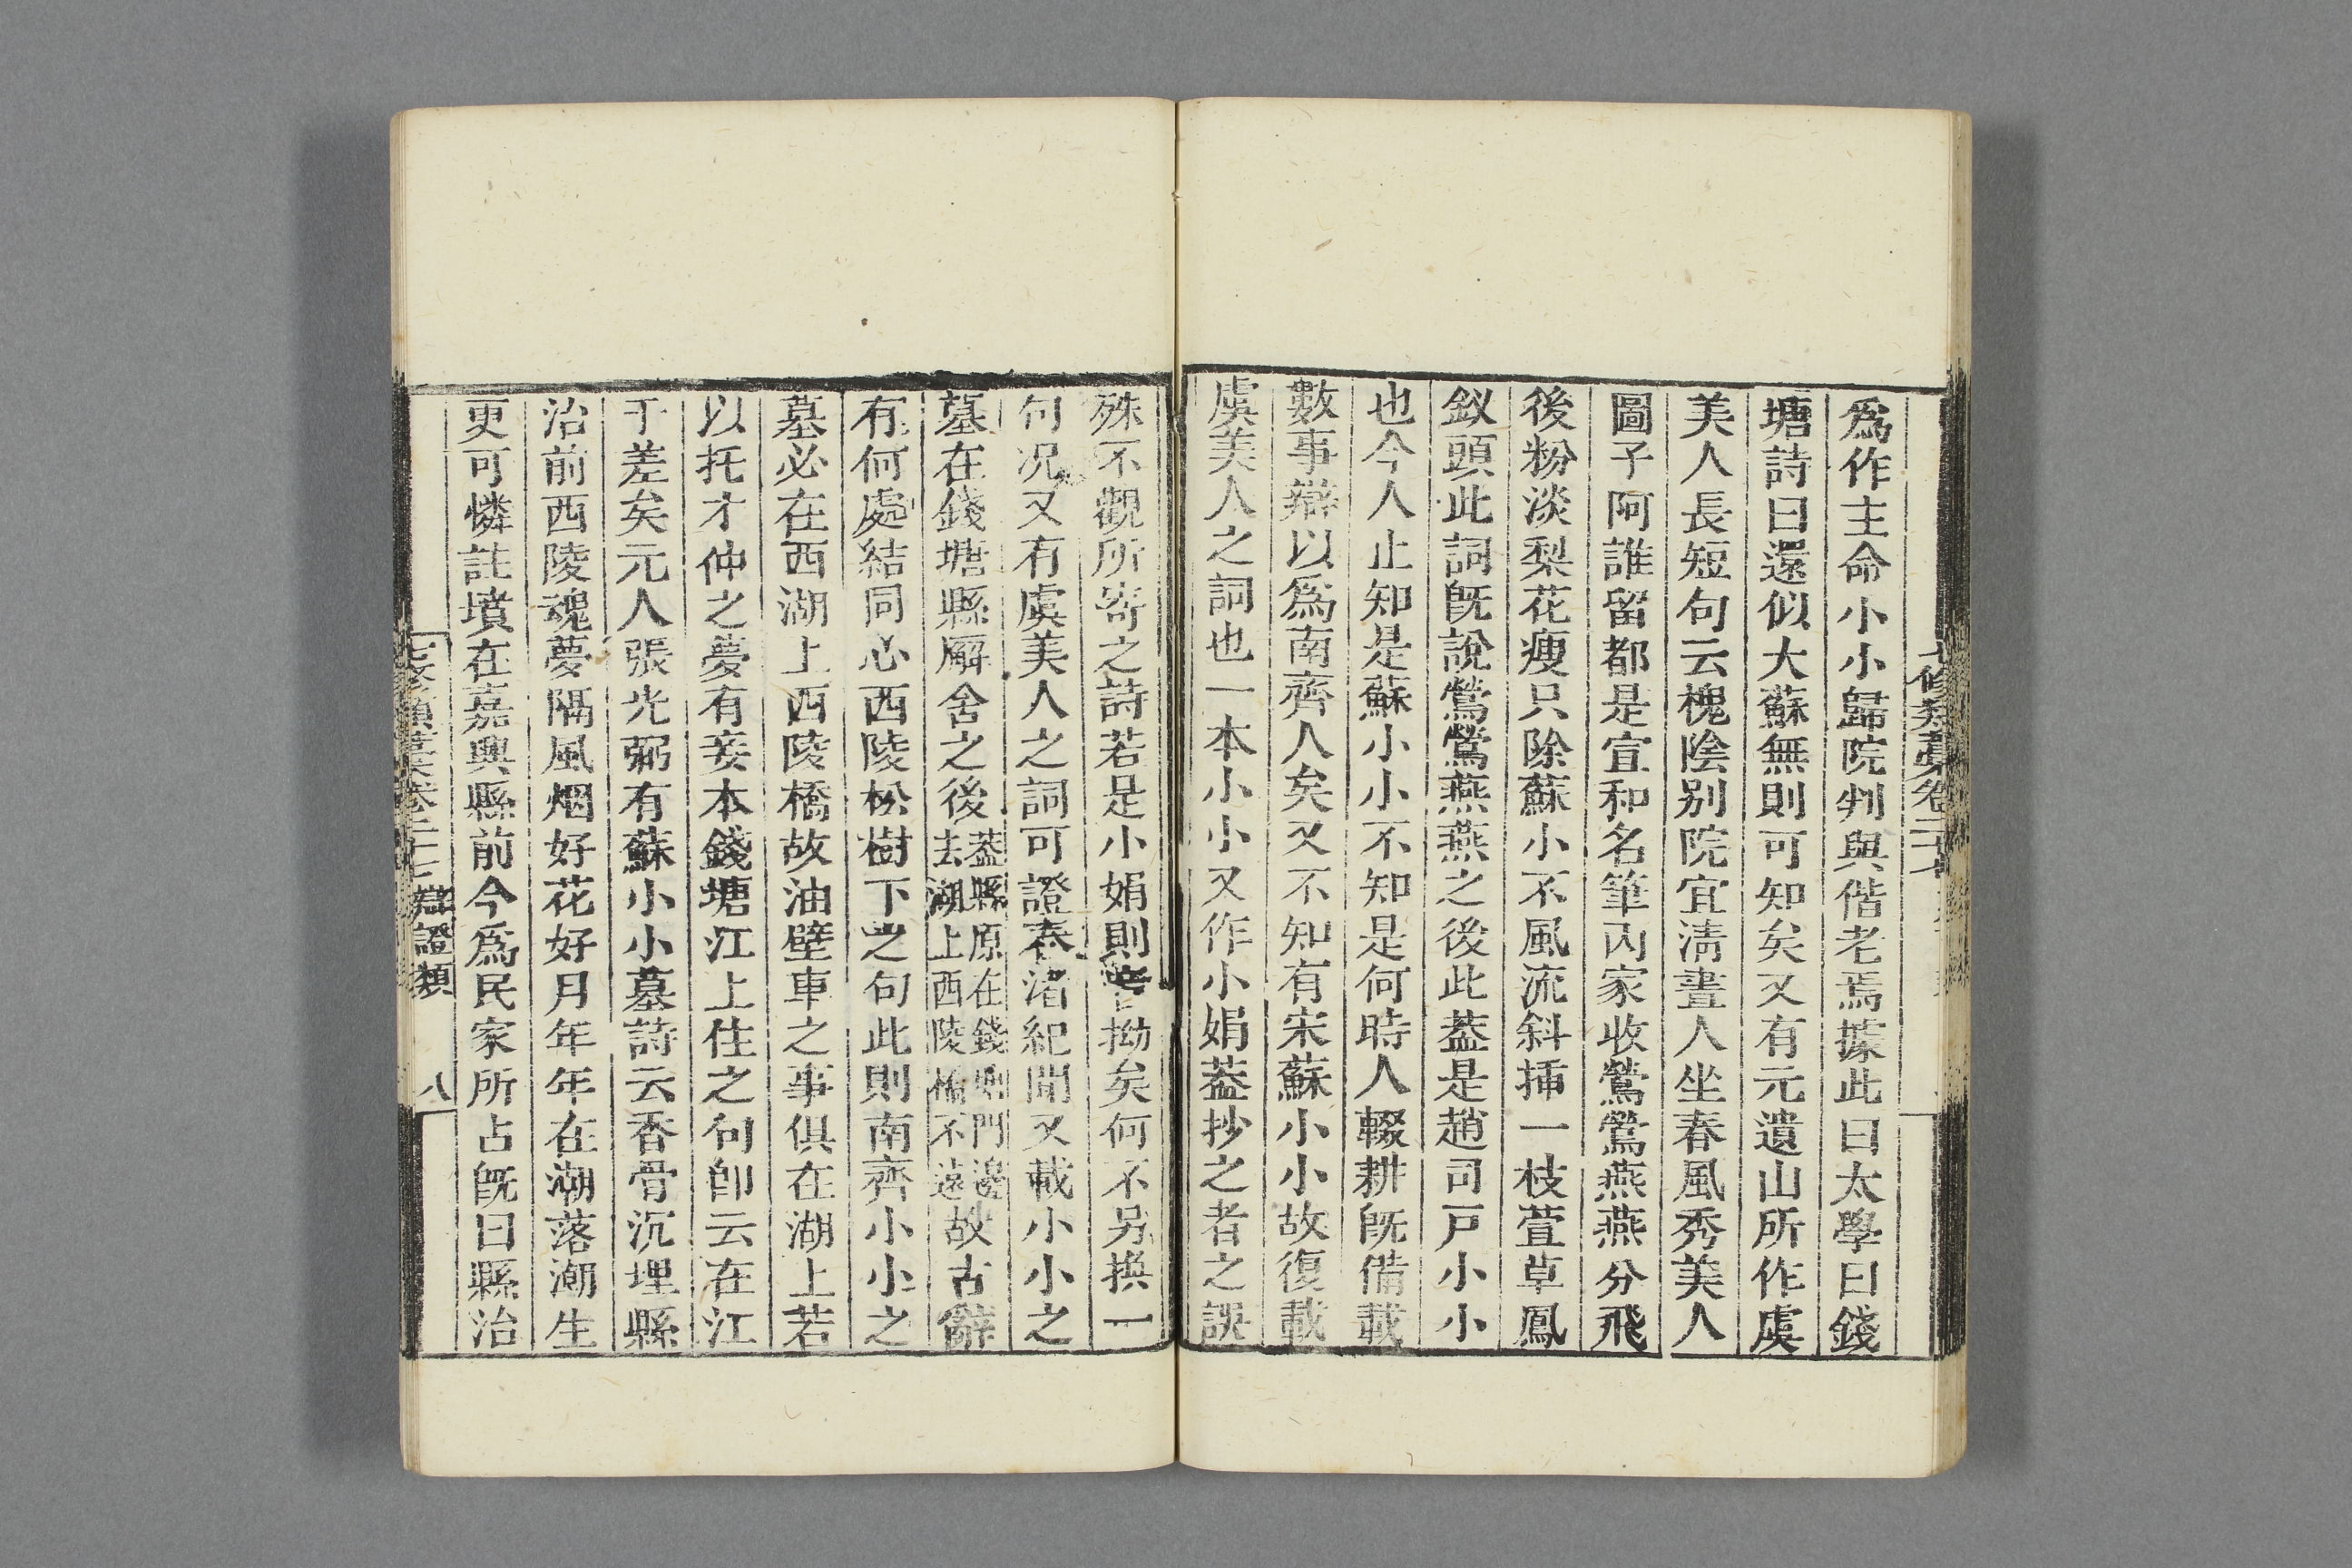 爲作主命小小歸院判與偕老焉據此曰太學曰錢
塘詩曰還似大蘇無則可知矣又有元遺山所作虞
美人長短句云槐陰别院宜清晝人坐春風秀美人
圖子阿誰留都是宣和名筆内家收鶯鶯燕燕分飛
後粉淡梨花瘦只除蘇小不風流斜揷一枝萱草鳳
釵頭此詞旣說鶯鶯燕燕之後此葢是趙司戸小小
也今人止知是蘇小小不知是何時人輟耕旣備載
數事辯以爲南齊人矣又不知有宋蘇小小故復載
虞美人之詞也一本小小又作小娟葢抄之者之誤
殊不觀所寄之詩若是小娟則拗矣何不另換一
句况又有虞美人之詞可證春渚紀聞又載小小之
墓在錢塘縣廨舍之後葢縣原在錢塘門邊去湖上西陵橋不遠故古辭
有何處結同心西陵松樹下之句此則南齊小小之
墓必在西湖上西陵橋故油壁車之事俱在湖上若
以托才仲之夢有妾本錢塘江上住之句卽云在江
干差矣元人張光弼有蘇小小墓詩云香骨沉埋縣
治前西陵魂夢隔風烟好花好月年年在潮落潮生
更可憐註墳在嘉興縣前今爲民家所占旣曰縣治
七修類藁卷二十七 辯證類 八